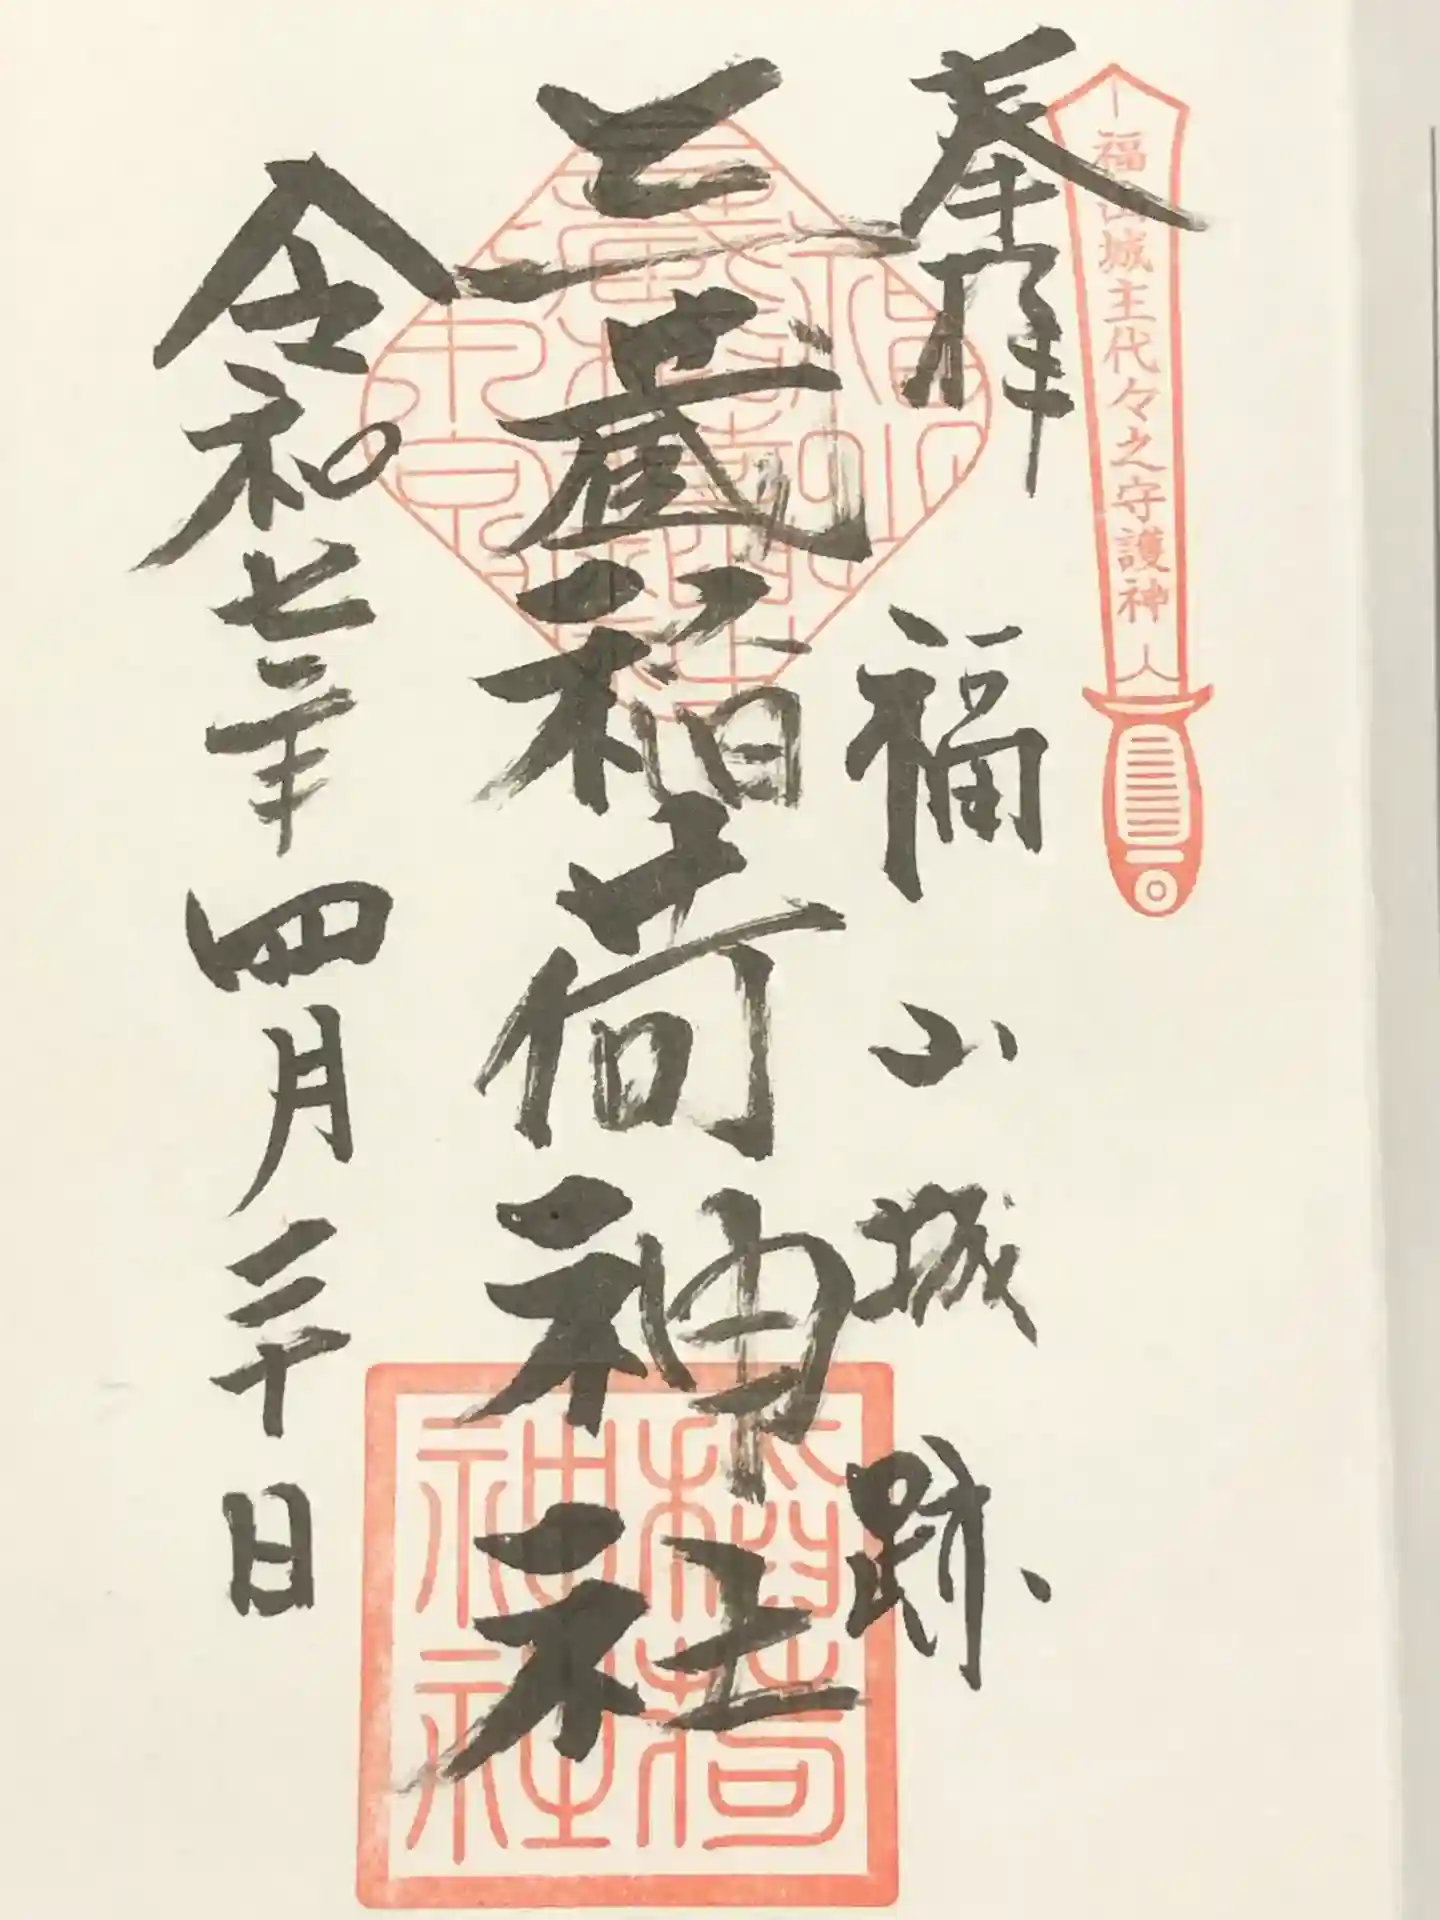 福山城主代々之守護神
奉拝 福山城跡
三蔵稲荷神社
令和七年四月二十日
稲荷神社